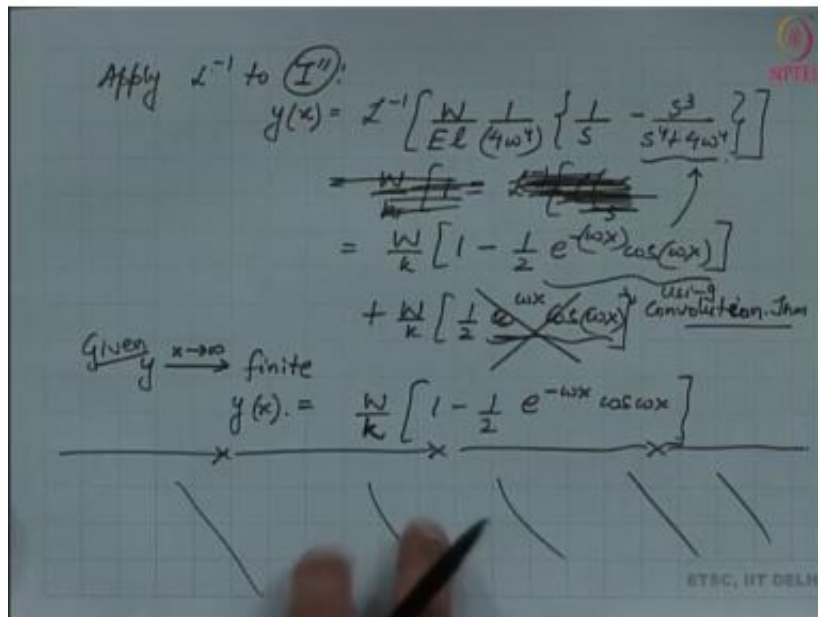 NPTEL
Apply L⁻¹ to I'':
y(x) = L⁻¹[W/El 1/(4ω⁴) {1/s - s³/(s⁴+4ω⁴)}]
= W/k [1 - 1/2 e^-(ωx) cos(ωx)]
+ W/k [1/2 e^ωx cos(ωx)] using
Convolution. Thm
Given y x→∞ finite
y(x). = W/k [1 - 1/2 e^-ωx cos ωx]
ETSC, IIT DELHI